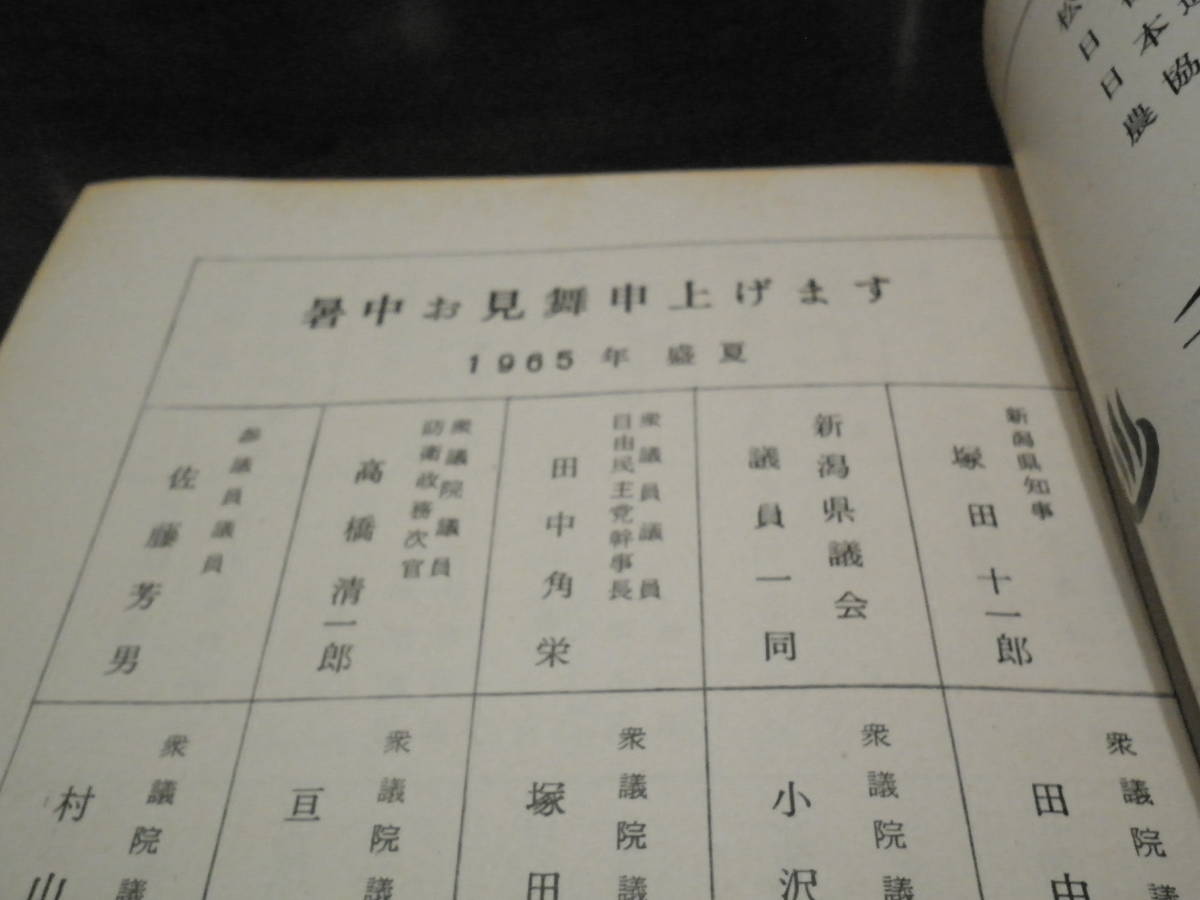 暑中お見舞申上げます
1965年 盛夏
新潟県知事
塚田十一郎
新潟県議会
議員一同
衆議員議員
自由民主党幹事長
田中角栄
衆議院議員
防衛政務次官
高橋清一郎
参議員議員
佐藤芳男
衆議院議
田中
衆議院議
小沢
衆議院議
塚田
衆議院議
亘
衆議院議
村山
日本
農協